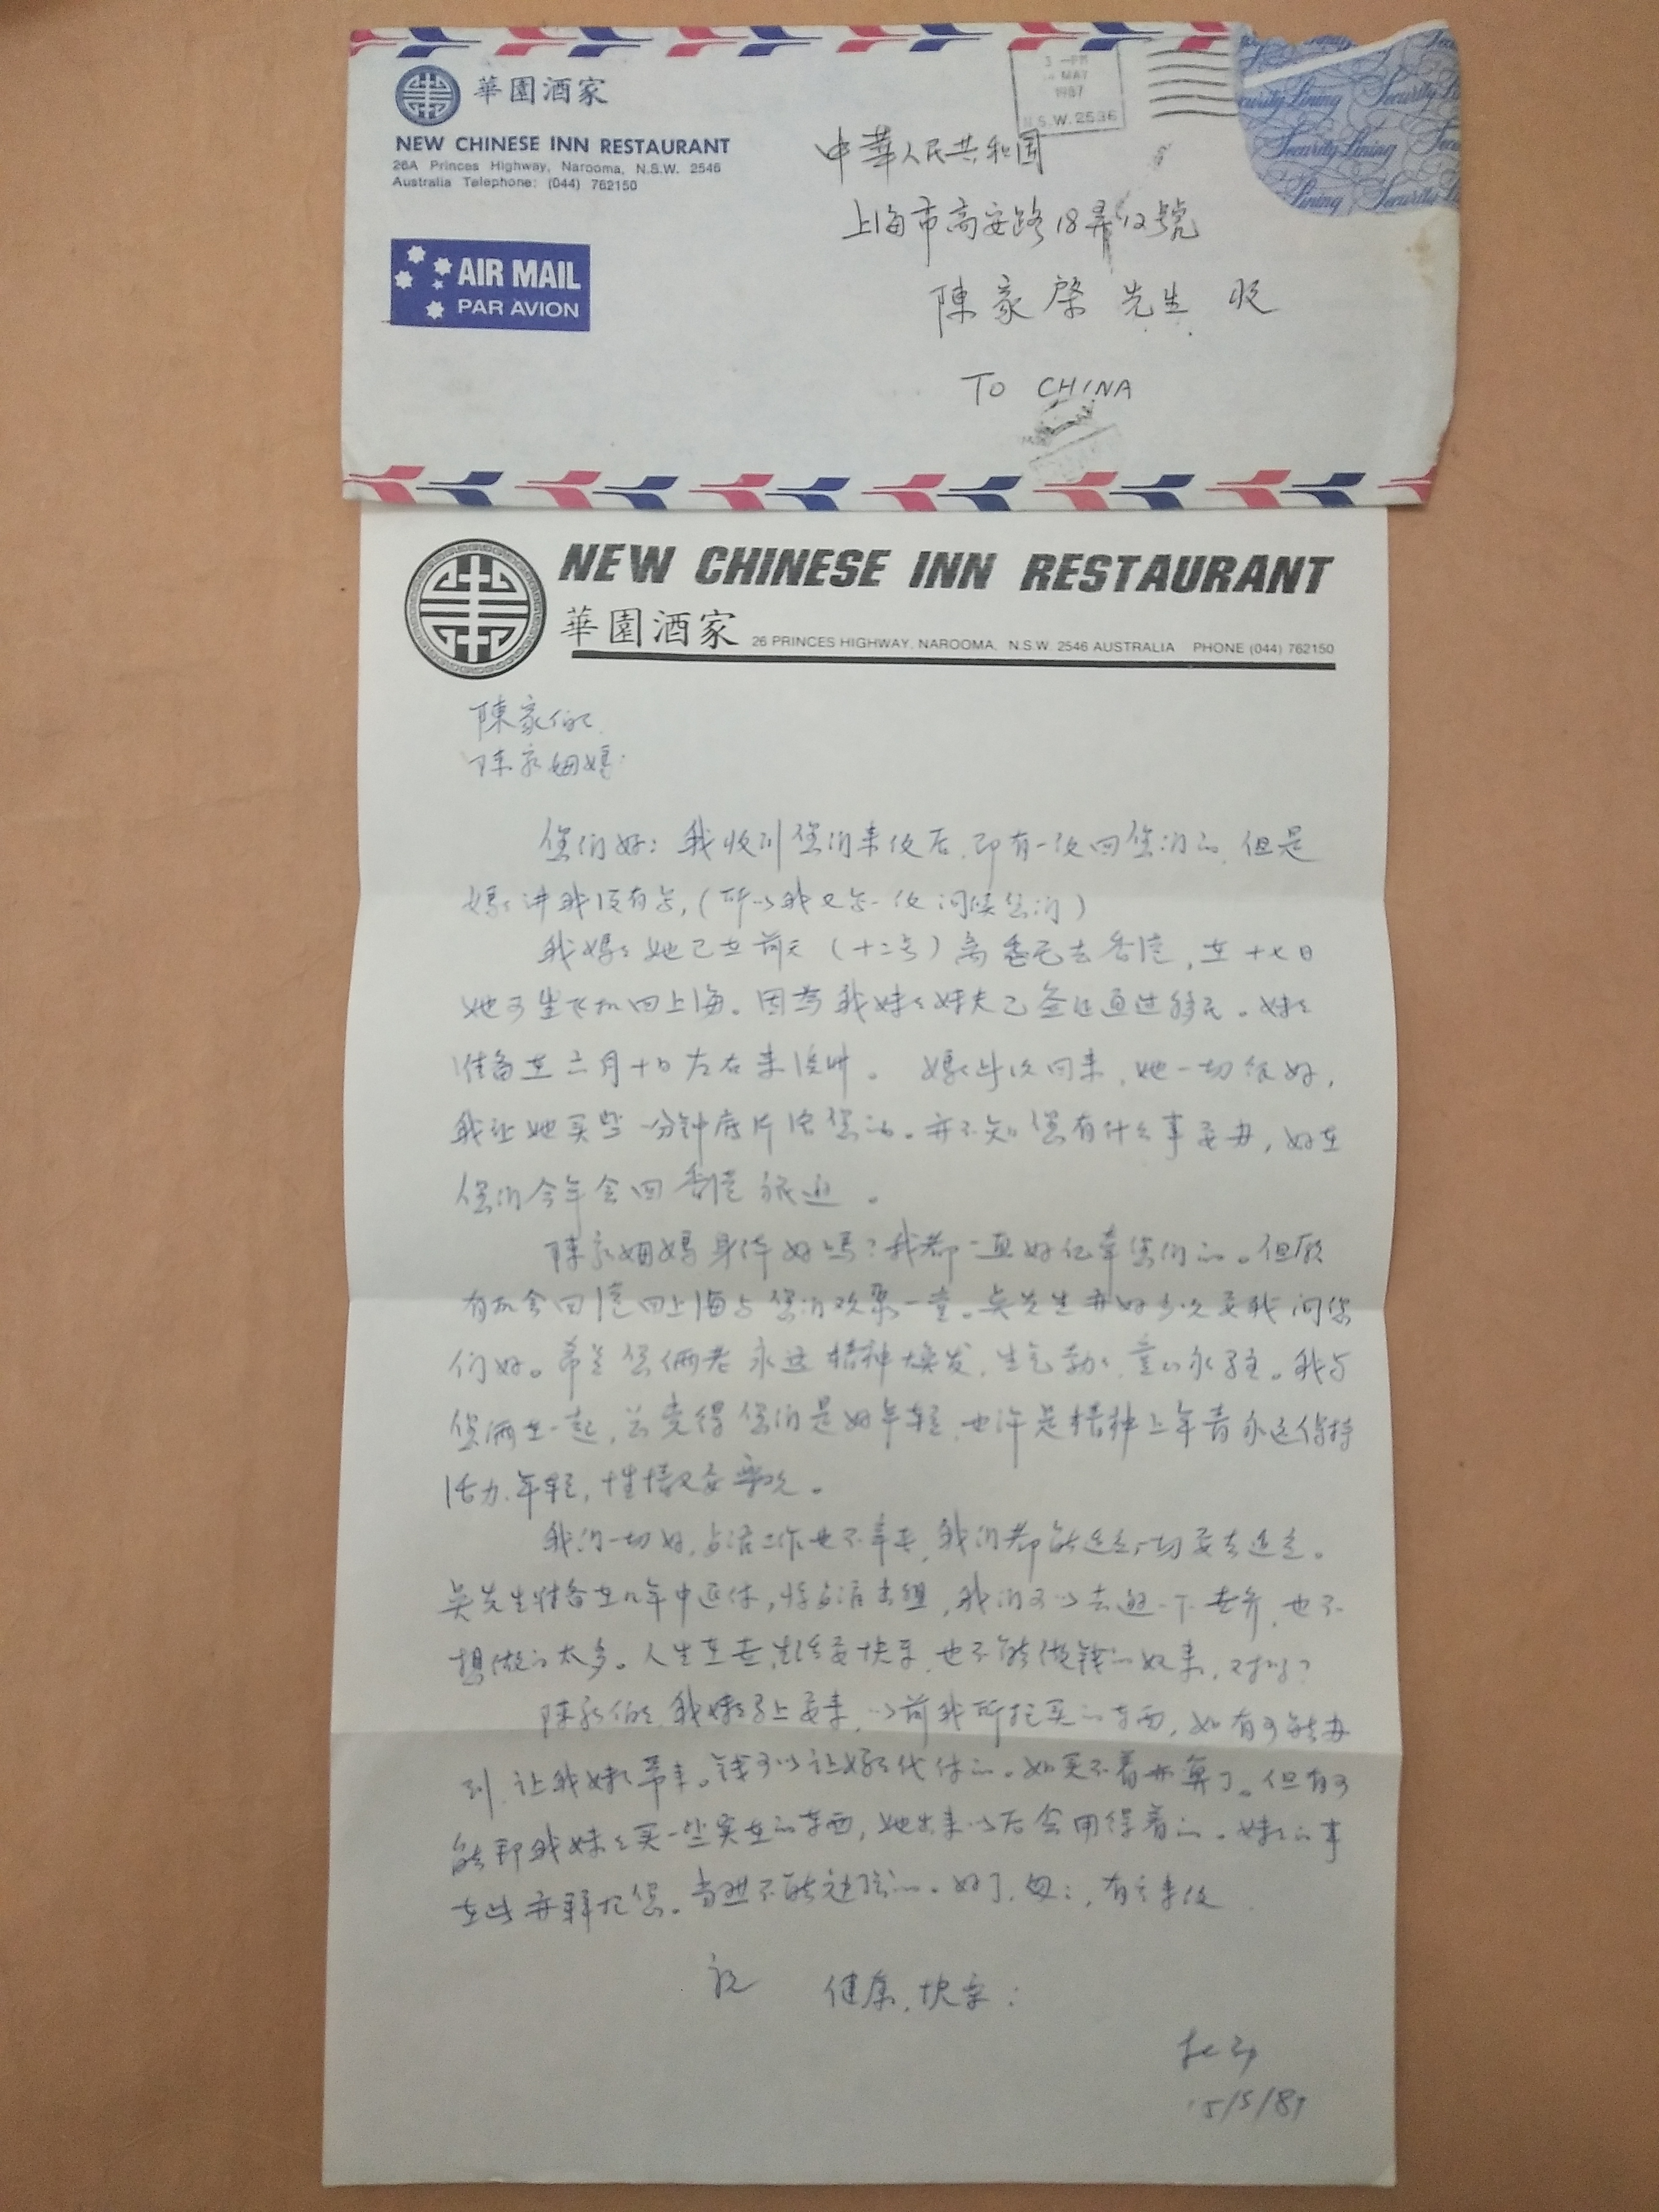 華園酒家
NEW CHINESE INN RESTAURANT
26A Princes Highway, Narooma, N.S.W. 2546
Australia Telephone: (044) 762150
3 -PM
MAY
1987
N.S.W. 2536
Security Lining
中華人民共和国
上海市高安路18弄12號
陳家棨先生 收
AIR MAIL
PAR AVION
TO CHINA
NEW CHINESE INN RESTAURANT
華園酒家 26 PRINCES HIGHWAY, NAROOMA, N.S.W. 2546 AUSTRALIA PHONE (044) 762150
陳家伯伯
陈家姆妈:
您们好: 我收到您们来信后,即有一信回您们的,但是
妈妈讲我没有写,(所以我又写一信问候您们)
我妈妈她已在前天(十二号)离悉尼去香港,在十七日
她可坐飞机回上海。因为我妹妹妹夫已签证通过移民。妹妹
准备在六月十日左右来。妈妈此次回来,她一切很好,
我让她买些一分钟底片给您的。亦不知您有什么事要办,好在
您们今年会回香港旅遊。
陈家姆妈身体好吗?我都一直好记牵您们的。但愿
有机会回港回上海与您们欢聚一堂。吴先生亦好多次要我问您
们好。希望您俩老永远精神焕发,生气勃勃,童心永驻。我与
您俩在一起,总觉得您们是好年轻,也许是精神上年青永远保持
活力、年轻,性情又要乐观。
我们一切好,店活工作也不辛苦,我们都能过,一切要去过。
吴先生准备在几年中退休,将店活出租,我们可以去遊一下世界,也不
想做的太多。人生在世,生活要快乐,也不能做钱的奴隶,对吗?
陈家伯伯,我妹妹马上要来,以前我所托买的东西,如有可能办
到,让我妹妹带来。钱可以让妈妈代付的。如买不着亦算了。但有可
能帮我妹妹买一些实在的东西,她出来以后会用得着的。妹妹的事
在此亦拜托您。当然不能勉强的。好了,匆匆,有空来信
祝 健康、快乐:
15/5/87